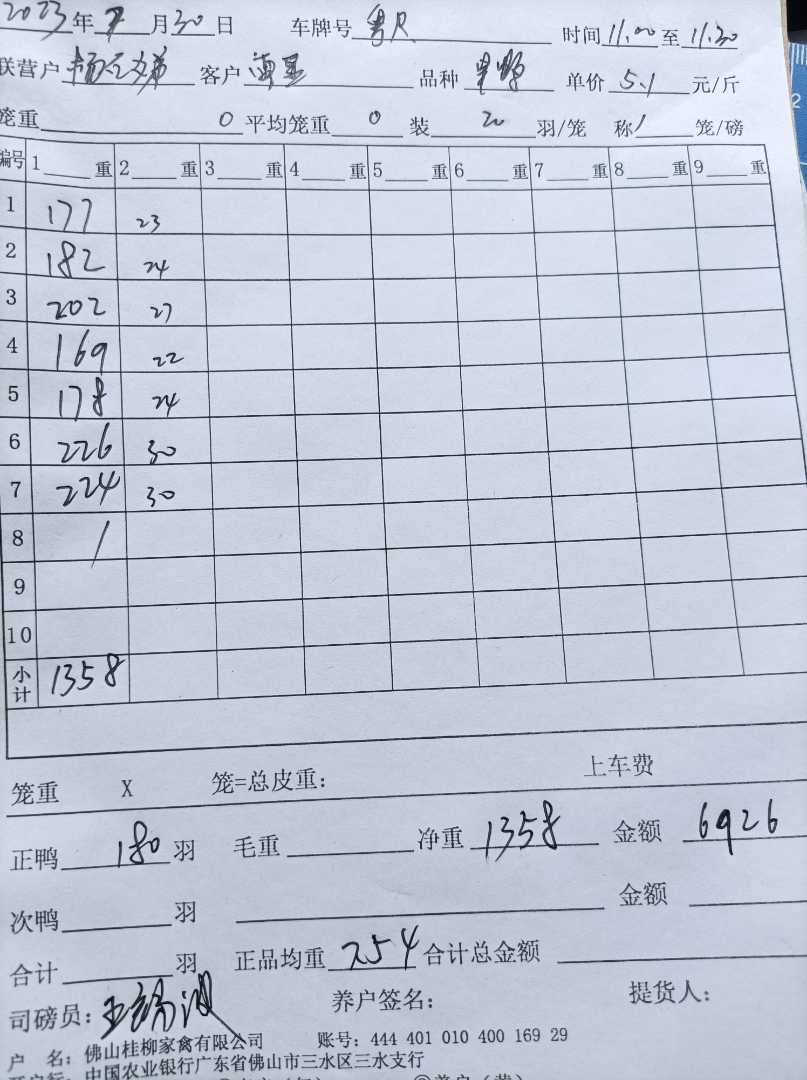 2023年7月30日 车牌号 粤R 时间11.00至11.30
联营户 客户 品种 单价 5.1 元/斤
笼重 0 平均笼重 0 装 20 羽/笼 称 1 笼/磅
编号 1 重 2 重 3 重 4 重 5 重 6 重 7 重 8 重 9 重
1 177 23
2 182 24
3 202 27
4 169 22
5 178 24
6 226 30
7 224 30
8 /
9
10
小计 1358
笼重 X 笼=总皮重: 上车费
正鸭 180 羽 毛重 净重 1358 金额 6926
次鸭 羽 金额
合计 羽 正品均重 7.54 合计总金额
司磅员: 养户签名: 提货人:
户 名: 佛山桂柳家禽有限公司 账号: 444 401 010 400 169 29
开户行: 中国农业银行广东省佛山市三水区三水支行